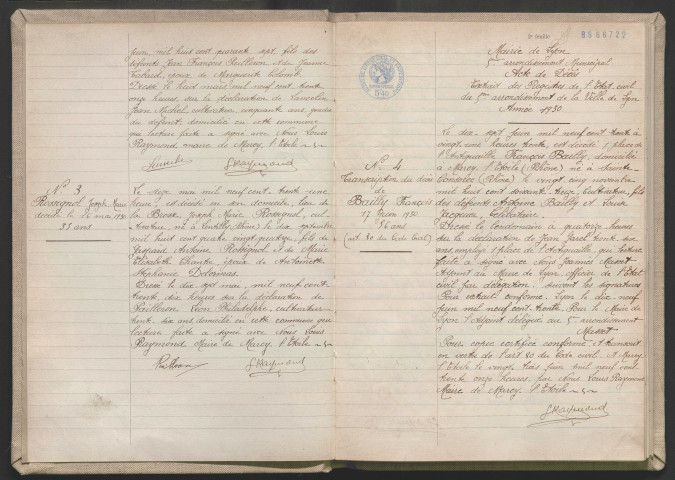 juin mil huit cent quarante sept, fils des
défunts Jean François Guilleron et de Jeanne
époux de Marguerite
Dressé le huit mars mil neuf cent trente
onze heures, sur la déclaration de
Jean Michel cultivateur cinquante ans, gendre
du défunt, domicilié en cette commune
qui lecture faite a signé avec Nous Louis
Raymond, maire de Marcy l'Etoile
LRaymond
N° 3
Rossignol Joseph Marie
décédé le 16 mai 1930
35 ans
Le seize mai mil neuf cent trente une
heure, est décédé en son domicile, lieu de
la Brosse Joseph Marie Rossignol, cul-
tivateur, né à le dix septembre
mil huit cent quatre vingt quatorze, fils de
Antoine Rossignol et de Marie
Elisabeth époux de Antoinette
Stéphanie Delorme
Dressé le dix sept mai, mil neuf cent
trente, dix heures sur la déclaration de
Guilleron Léon Philadelphe, cultivateur
trente six ans, domicilié en cette commune qui
lecture faite a signé avec Nous Louis
Raymond Maire de Marcy l'Etoile
LRaymond
2e feuille
B866722
Mairie de Lyon
5e arrondissement Municipal
Acte de Décès
Extrait des Registres de l'Etat civil
du 5me arrondissement de la Ville de Lyon
Année 1930
N° 4
Transcription du décès
de
Bailly François
17 juin 1930
56 ans
(art. 80 du Code Civil)
Le dix sept juin mil neuf cent trente à
vingt une heures trente, est décédé, place
de l'Antiquaille François Bailly, domicilié
à Marcy l'Etoile (Rhône) né à Sainte
Consorce (Rhône) le vingt cinq novembre
mil huit cent soixante treize, cultivateur, fils
des défunts Antoine Bailly et Louise
Jacquet, célibataire.
Dressé le lendemain à quatorze heures
sur la déclaration de Jean trente six
ans employé, place de l'Antiquaille, qui lecture
faite a signé avec Nous Joannès Masset
Adjoint au Maire de Lyon, officier de l'Etat
civil par délégation, suivent les signatures
Pour extrait conforme, Lyon le dix neuf
juin mil neuf cent trente. Pour le Maire de
Lyon l'Adjoint délégué au 5e arrondissement
Masset
Pour copie certifiée conforme et transcrit
en vertu de l'art. 80 du Code civil. A Marcy
l'Etoile le vingt trois juin mil neuf cent
trente onze heures, par Nous Louis Raymond
Maire de Marcy l'Etoile
LRaymond